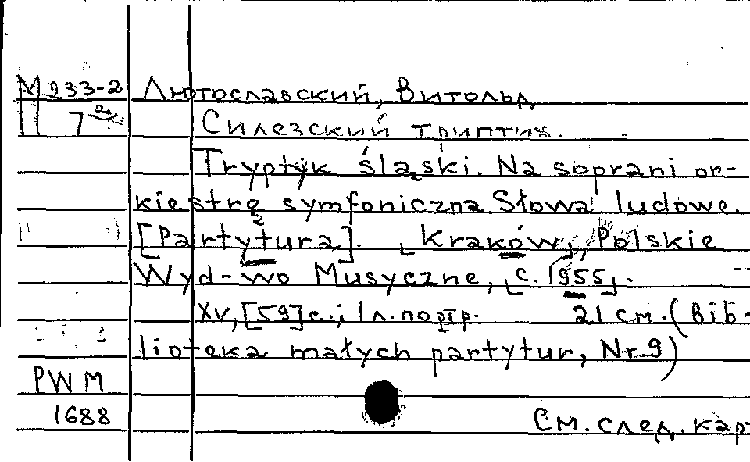 М 233-2 Лютославский, Витольд
7 Силезский триптих.
Tryptyk śląski. Na sopran i or-
kiestrę symfoniczna Słowa ludowe.
[Partytura]. [Kraków], Polskie
Wyd-wo Musyczne, [c. 1955].
XV, [59] с.; 1 л. портр. 21 см. (Bib-
lioteka małych partytur, Nr 9)
PWM
1688 См. след. кар